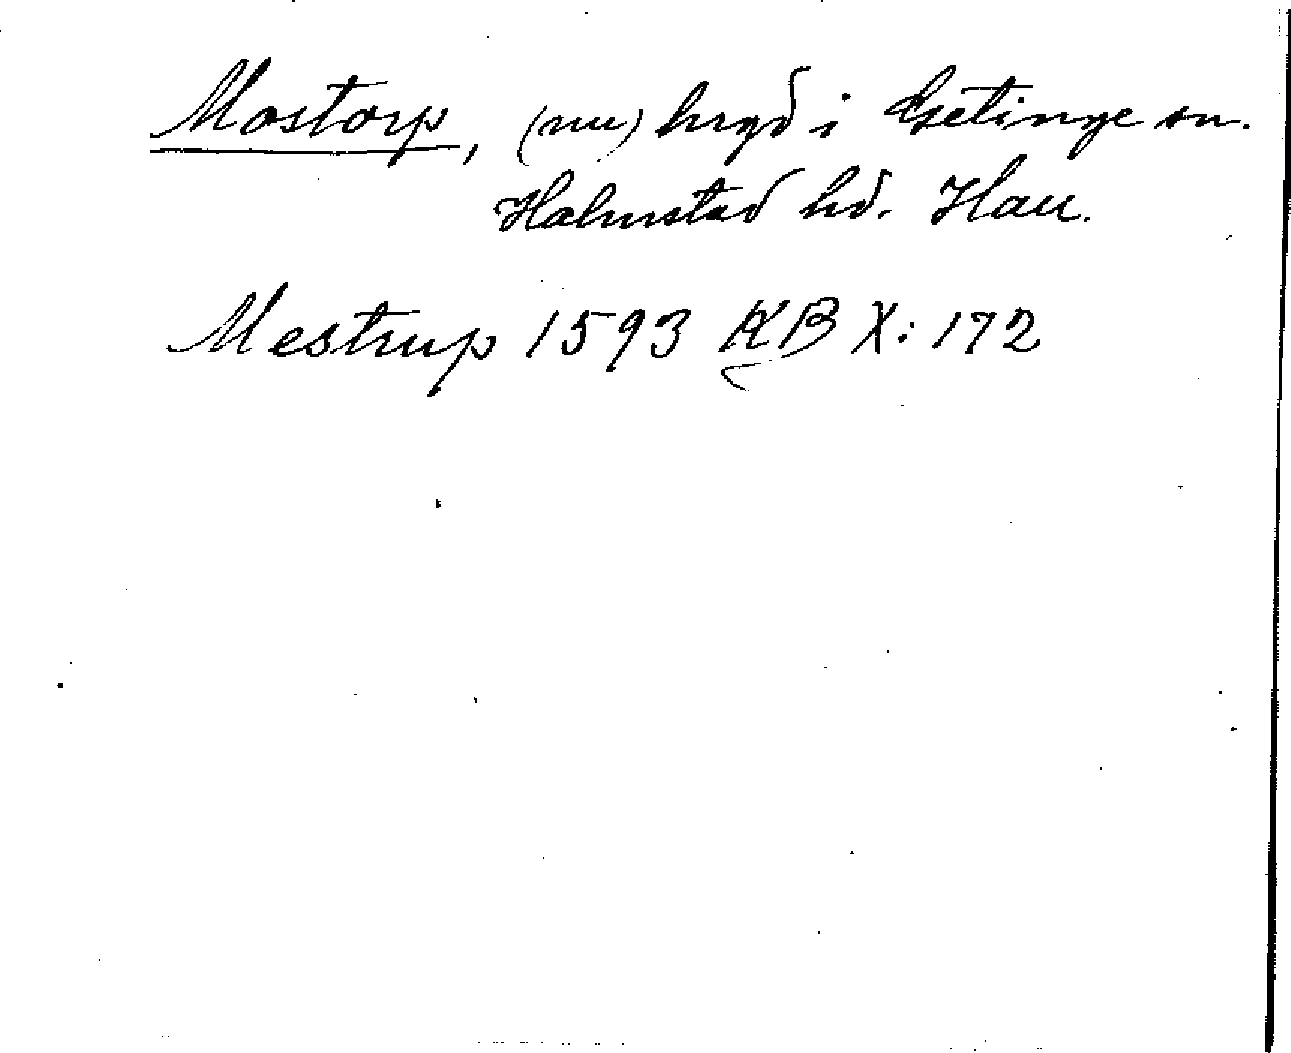 Mostorp, (nu) hrgd i Getinge sn.
Halmstad hd. Hall.
Mestrup 1593 KB X: 172